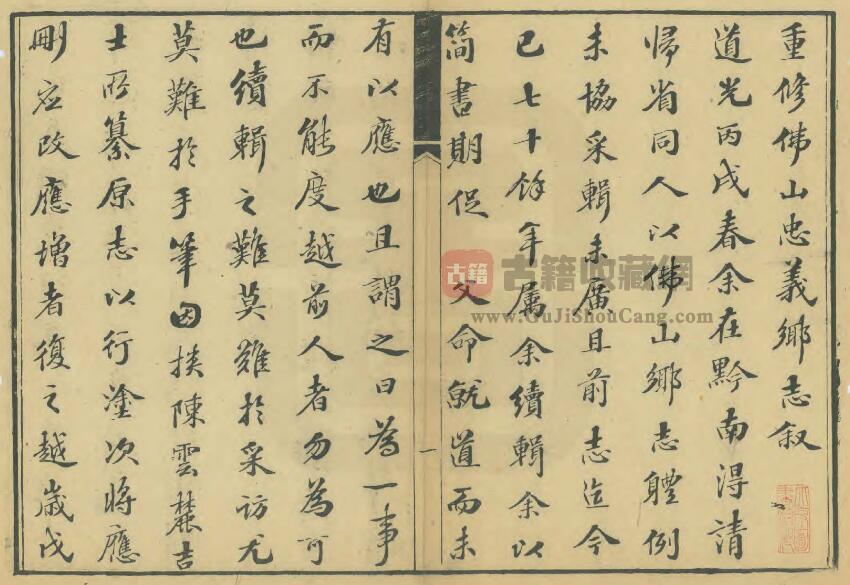 重修佛山忠義鄉志叙
道光丙戌春余在黔南得請
歸省同人以佛山鄉志體例
未協采輯未廣且前志迄今
已七十餘年屬余續輯余以
简書期促 父命就道而未
一
有以應也且謂之曰為一事
而不能度越前人者勿為可
也續輯之難莫難於采訪尤
莫難於手筆因挾陳雲麓吉
士所纂原志以行塗次將應
刪應改應增者復之越歲戊
古籍 古籍收藏網
www.GuJiShouCang.com